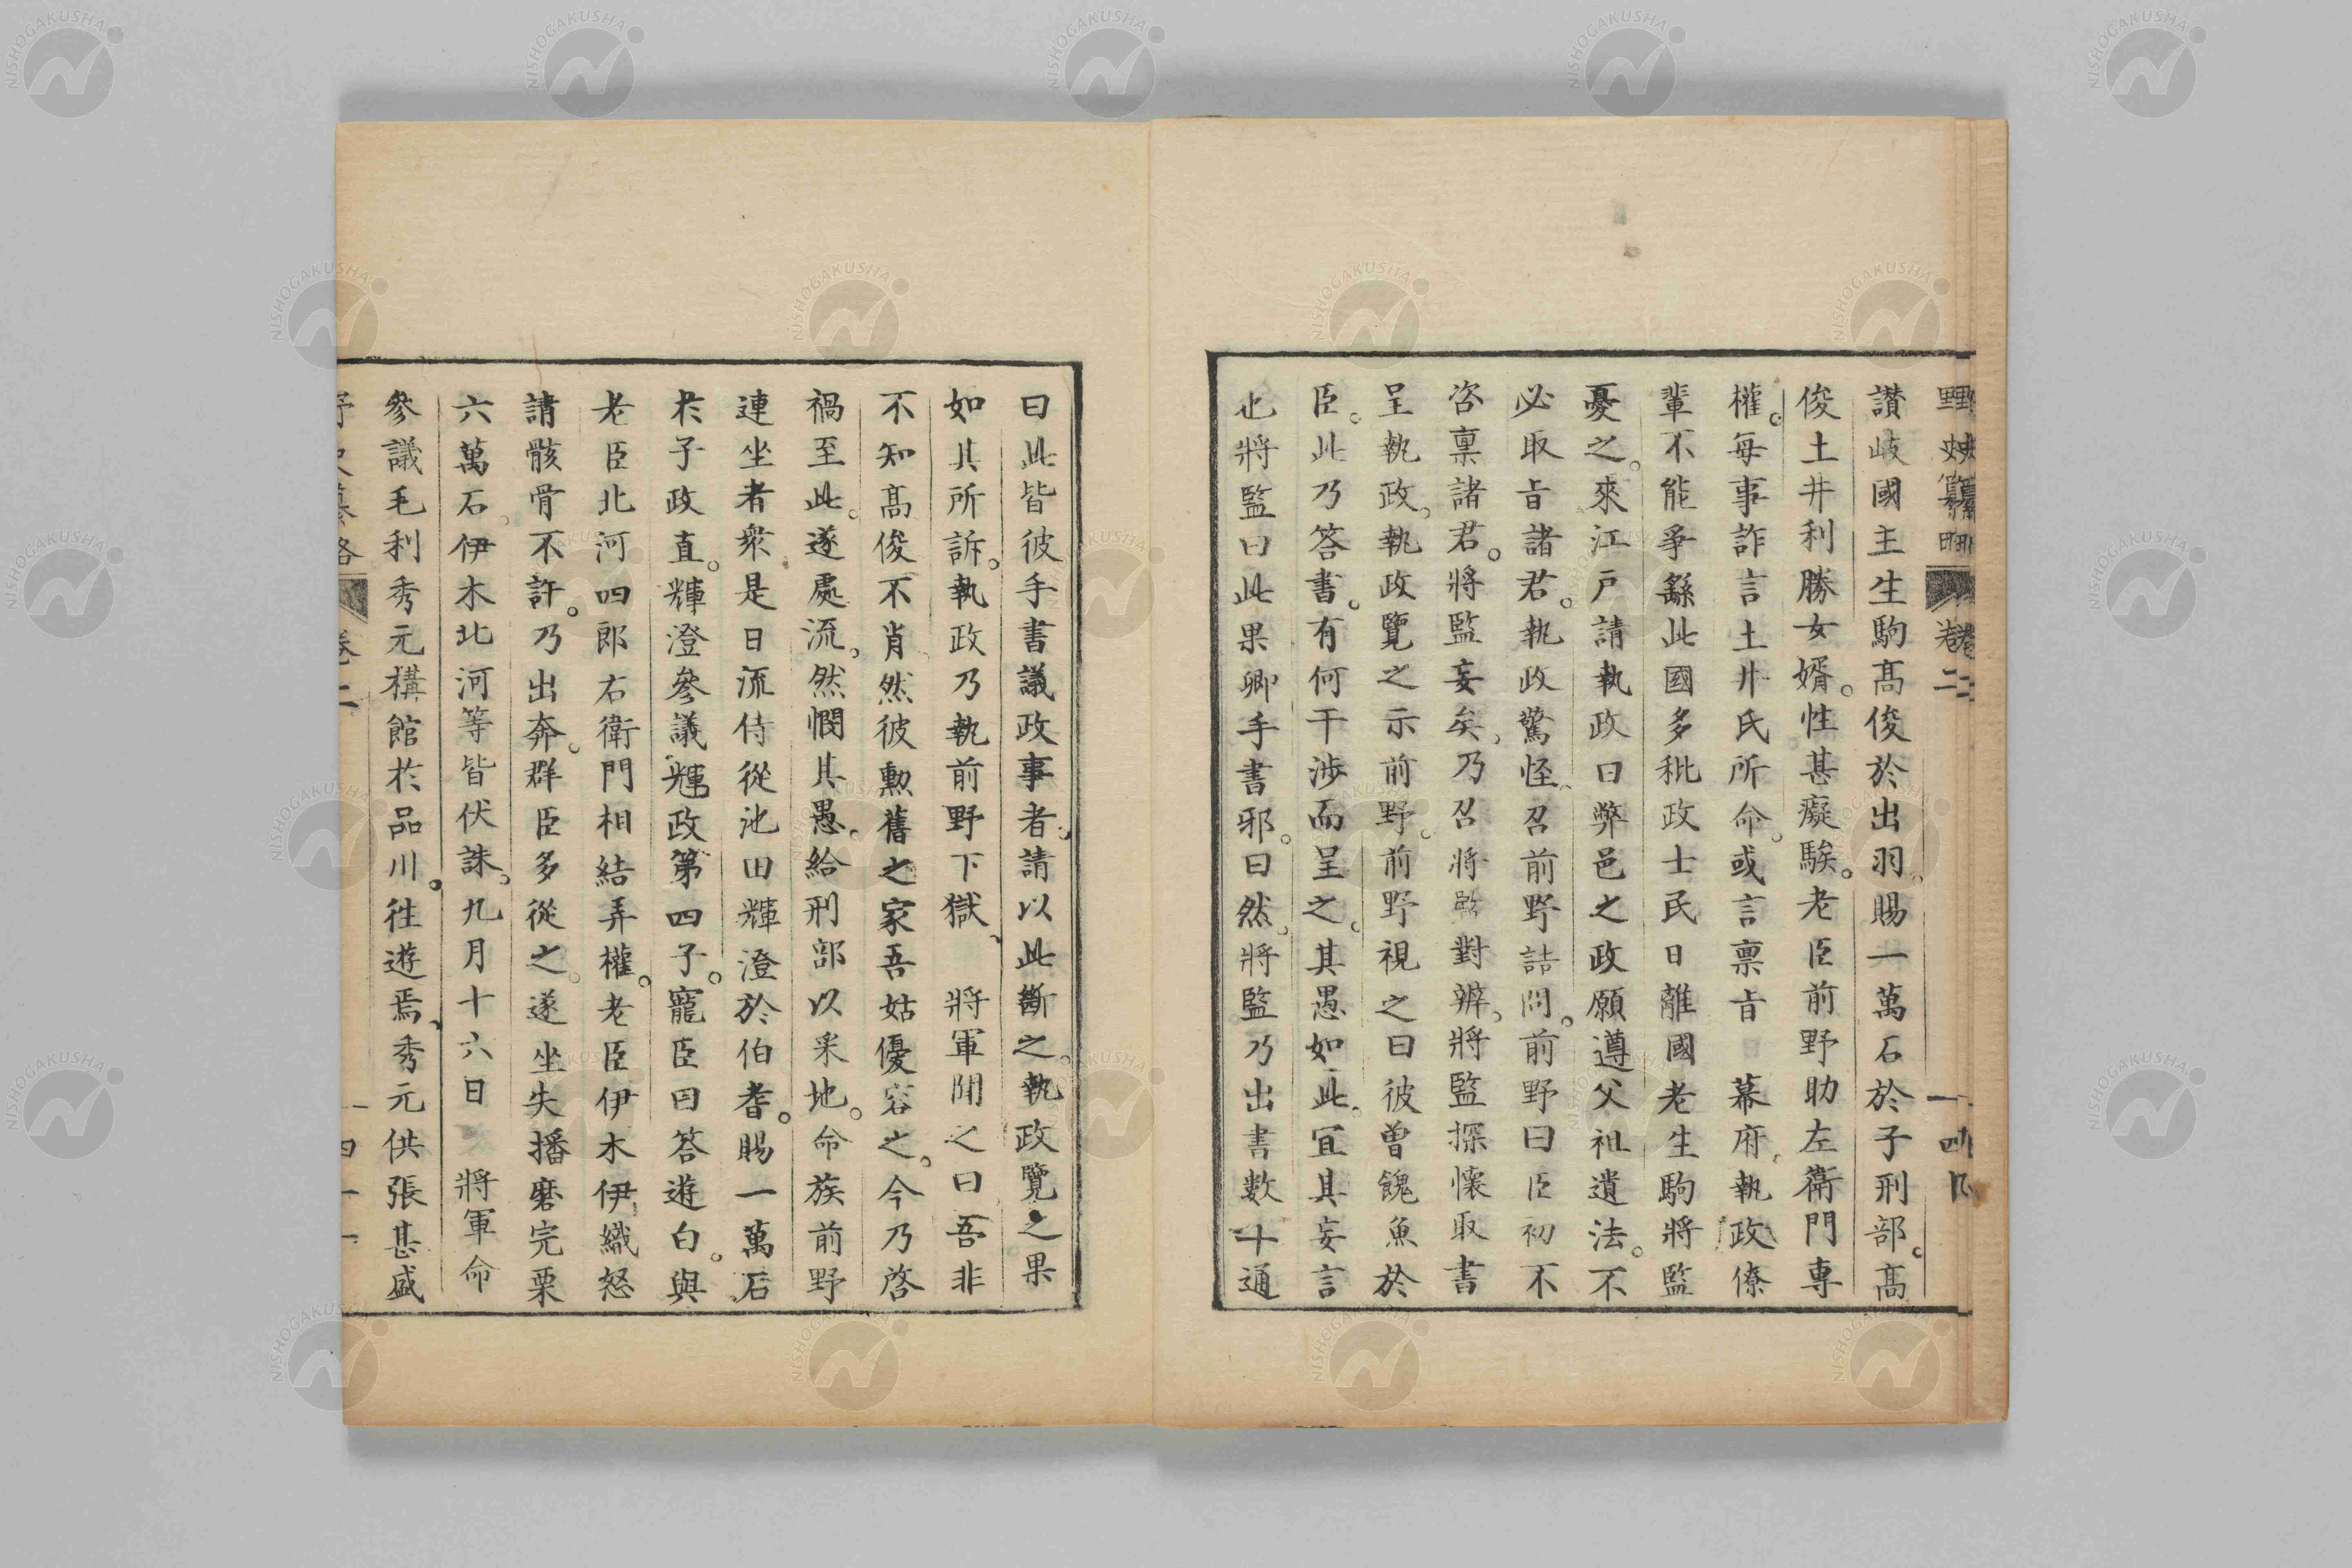 讃岐國主生駒髙俊於出羽。賜一萬石於子刑部。髙
俊土井利勝女婿。性甚癡騃。老臣前野助左衛門專
權。每事詐言土井氏所命。或言稟旨 幕府。執政僚
輩不能爭繇此國多秕政士民日離國老生駒將監
憂之。來江戸請執政曰弊邑之政願遵父祖遺法。不
必取旨諸君。執政驚怪召前野詰問。前野曰臣初不
咨稟諸君。將監妄矣。乃召將監對辨。將監探懷取書
呈執政。執政覽之示前野。前野視之曰彼曾餽魚於
臣。此乃答書。有何干渉而呈之。其愚如此。宜其妄言
也將監曰此果卿手書邪。曰然。將監乃出書数十通
曰此皆彼手書議政事者。請以此斷之。執政覽之果
如其所訴。執政乃執前野下獄 將軍聞之曰吾非
不知髙俊不肖然彼勲舊之家吾姑優容之。今乃啓
禍至此。遂處流。然憫其愚。給刑部以采地。命族前野
連坐者衆是日流侍從池田輝澄於伯耆。賜一萬石
於子政直。輝澄參議輝政第四子。寵臣曰答遊白。與
老臣北河四郎右衛門相結弄權。老臣伊木伊織怒
請骸骨不許。乃出奔。群臣多從之。遂坐失播磨完粟
六萬石。伊木北河等皆伏誅。九月十六日 將軍命
參議毛利秀元構館於品川。徃遊焉。秀元供張甚盛
卷二